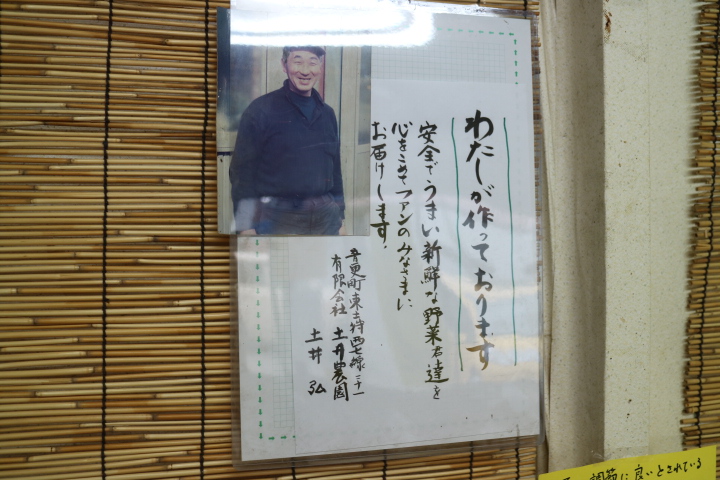 わたしが作っております
安全でうまい新鮮な野菜君達を
心をこめてファンのみなさまに
お届けします。
音更町東士狩西七線二十一
有限会社 土井農園
土井 弘
調節に良いとされている